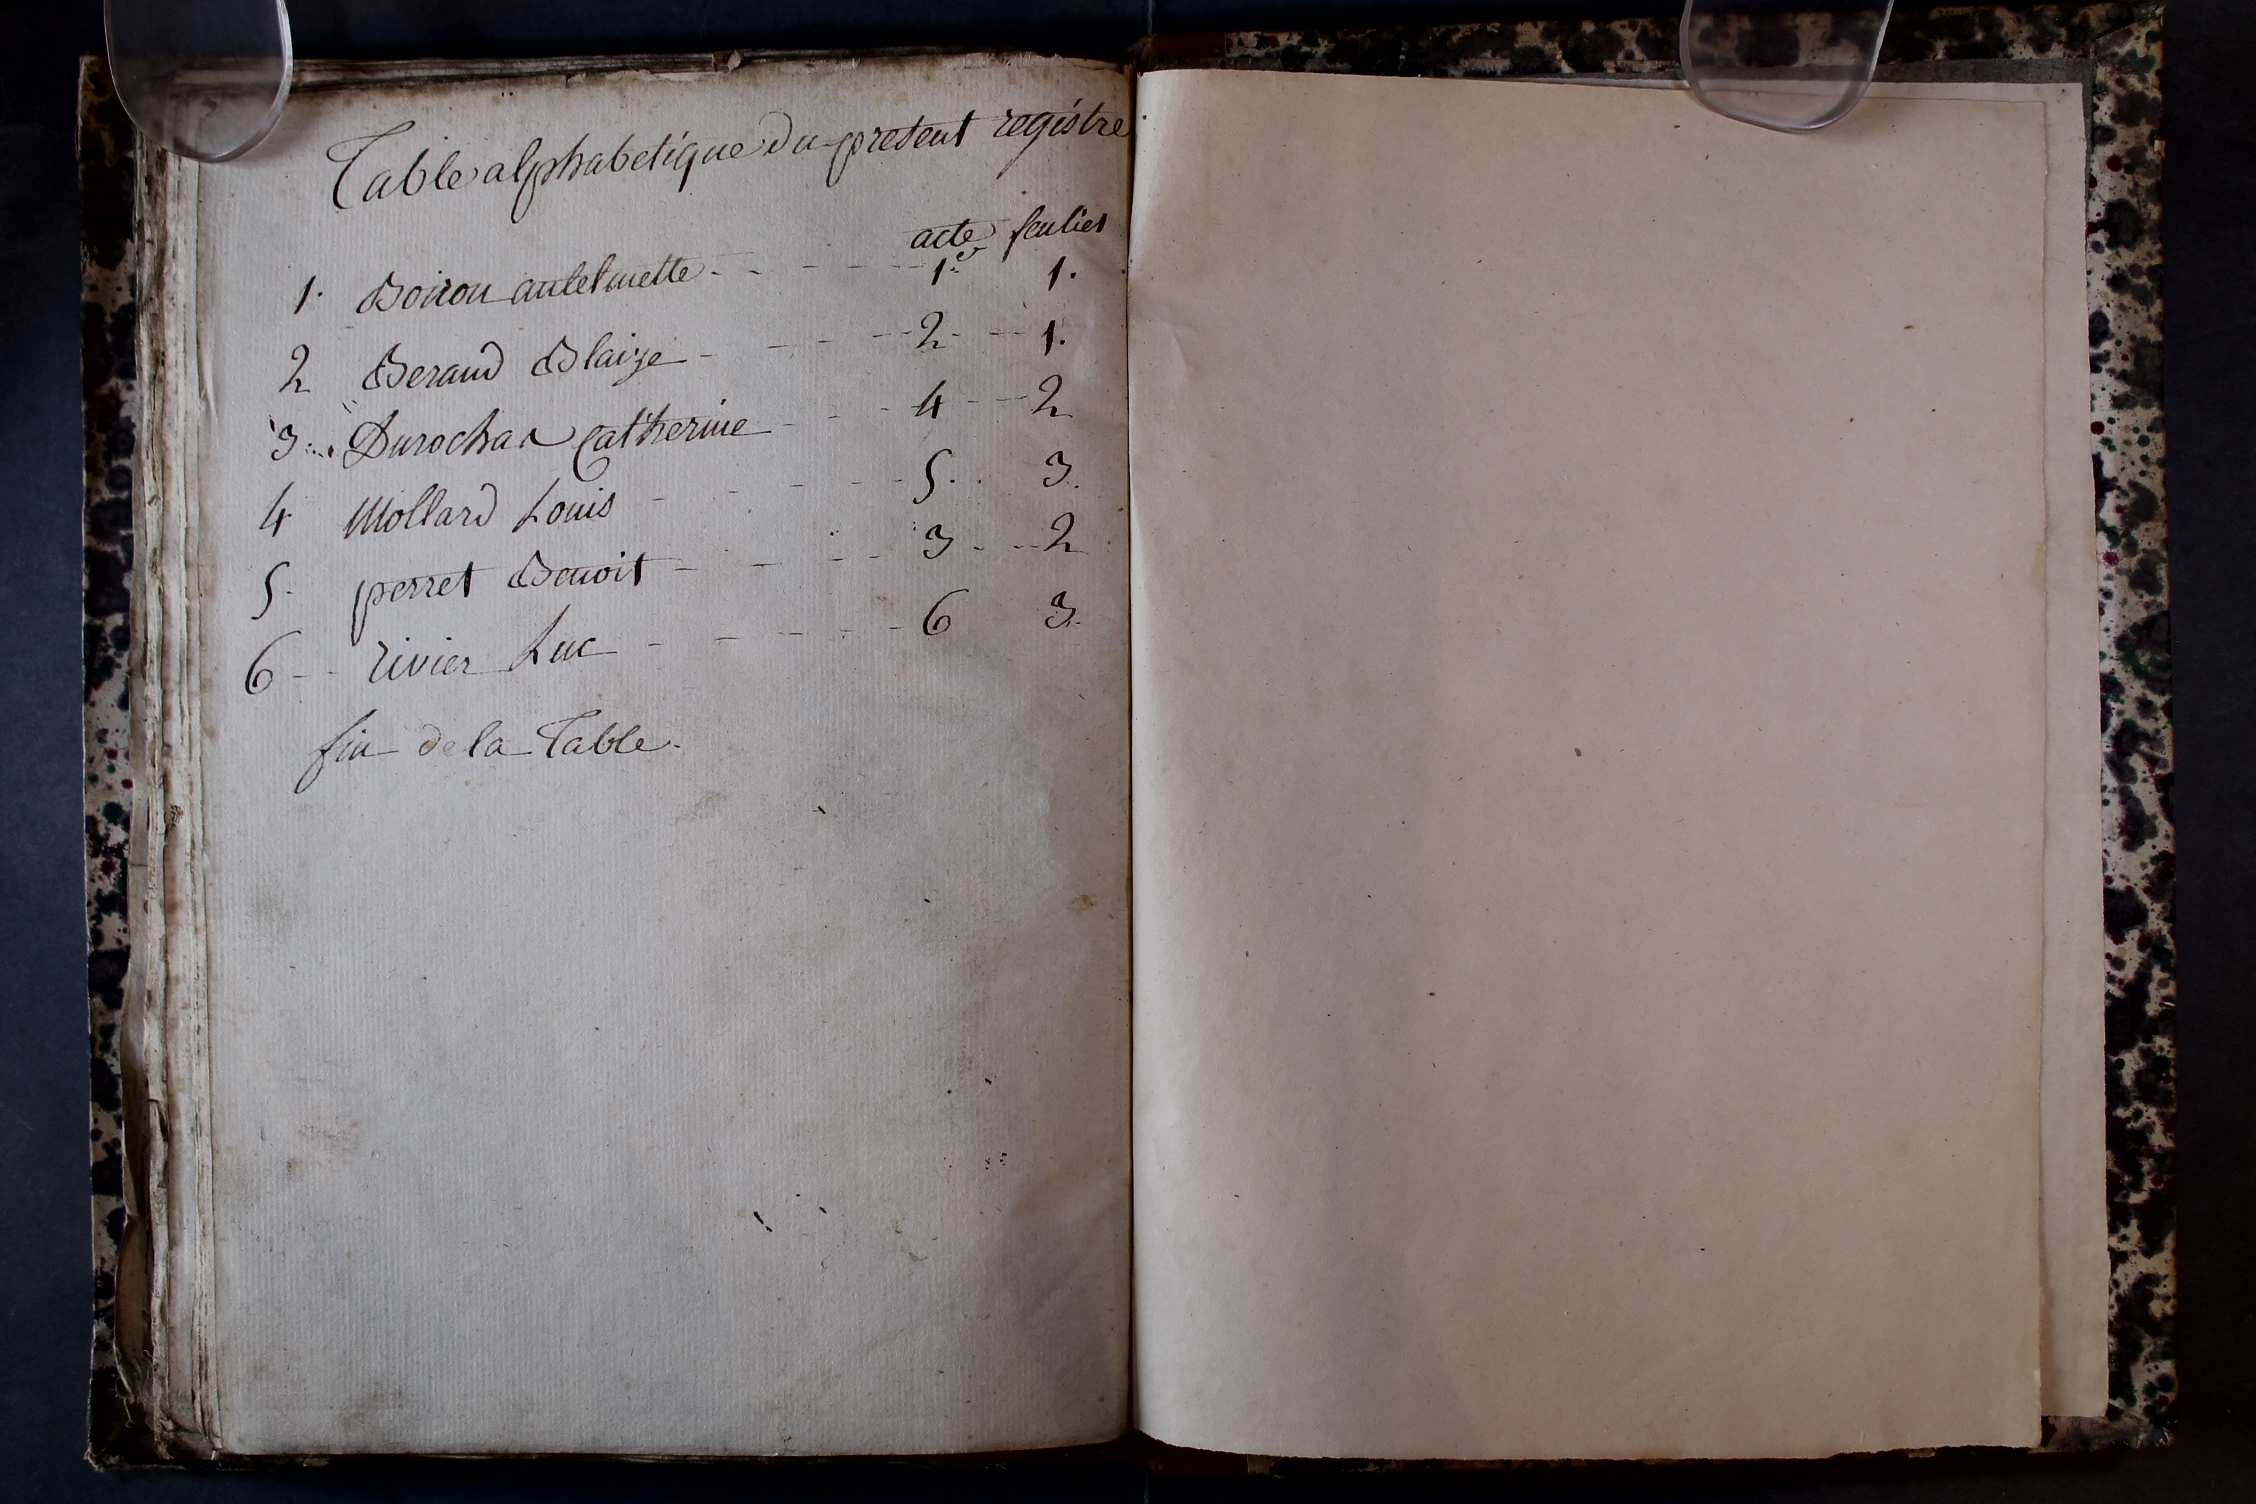 Table alphabetique du present registre
acte feuliet
1. Boiron antelmette - - - - - 1.er 1.
2 Beraud Blaize - - - - - 2 - - 1.
3 Durochat Catherine - - - - 4 - - 2
4 Mollard Louis - - - - - 5. . 3.
5. perret Benoit - - - - - 3 - - 2
6 - - rivier Luc - - - - - 6 3.
fin de la Table.